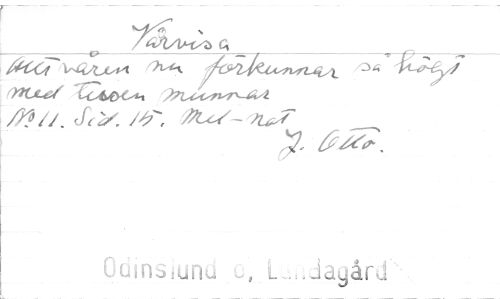 Vårvisa
Allt våren nu förkunnar så högt
med tusen munnar
No 11. Sid. 15. Mel-not
J. Otto.
Odinslund o, Lundagård